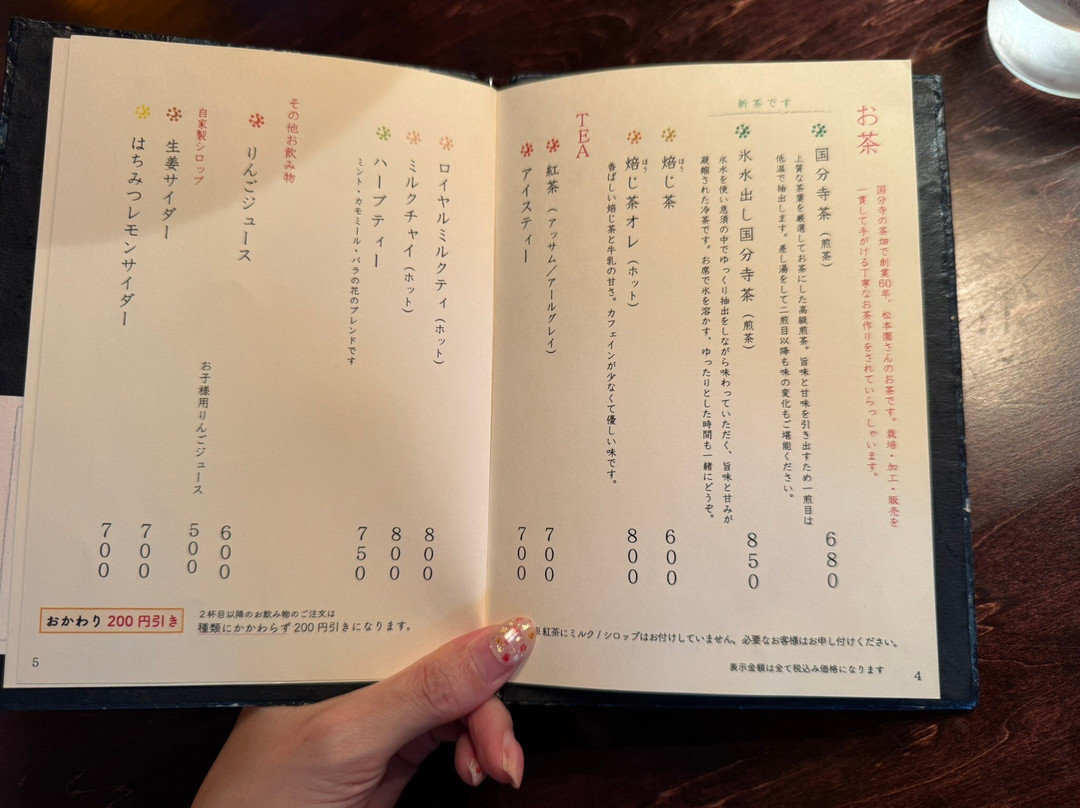 お茶
国分寺の茶畑で創業60年、松本園さんのお茶です。栽培・加工・販売を
一貫して手がける丁寧なお茶作りをされていらっしゃいます。
新茶です
国分寺茶（煎茶） 680
上質な茶葉を厳選してお茶にした高級煎茶。旨味と甘味を引き出すため一煎目は
低温で抽出します。差し湯をして二煎目以降も味の変化もご堪能ください。
氷水出し国分寺茶（煎茶） 850
氷水を使い急須の中でゆっくり抽出をしながら味わっていただく、旨味と甘みが
凝縮された冷茶です。お席で氷を溶かす、ゆったりとした時間も一緒にどうぞ。
焙じ茶 600
ほう
焙じ茶オレ（ホット） 800
ほう
香ばしい焙じ茶と牛乳の甘さ。カフェインが少なくて優しい味です。
TEA
紅茶（アッサム／アールグレイ） 700
アイスティー 700
紅茶にミルク/シロップはお付けしていません、必要なお客様はお申し付けください。
表示金額は全て税込み価格になります
4
ロイヤルミルクティ（ホット） 800
ミルクチャイ（ホット） 800
ハーブティー 750
ミント・カモミール・バラの花のブレンドです
その他お飲み物
りんごジュース 600
お子様用りんごジュース 500
自家製シロップ
生姜サイダー 700
はちみつレモンサイダー 700
おかわり 200 円引き
２杯目以降のお飲み物のご注文は
種類にかかわらず 200 円引きになります。
5